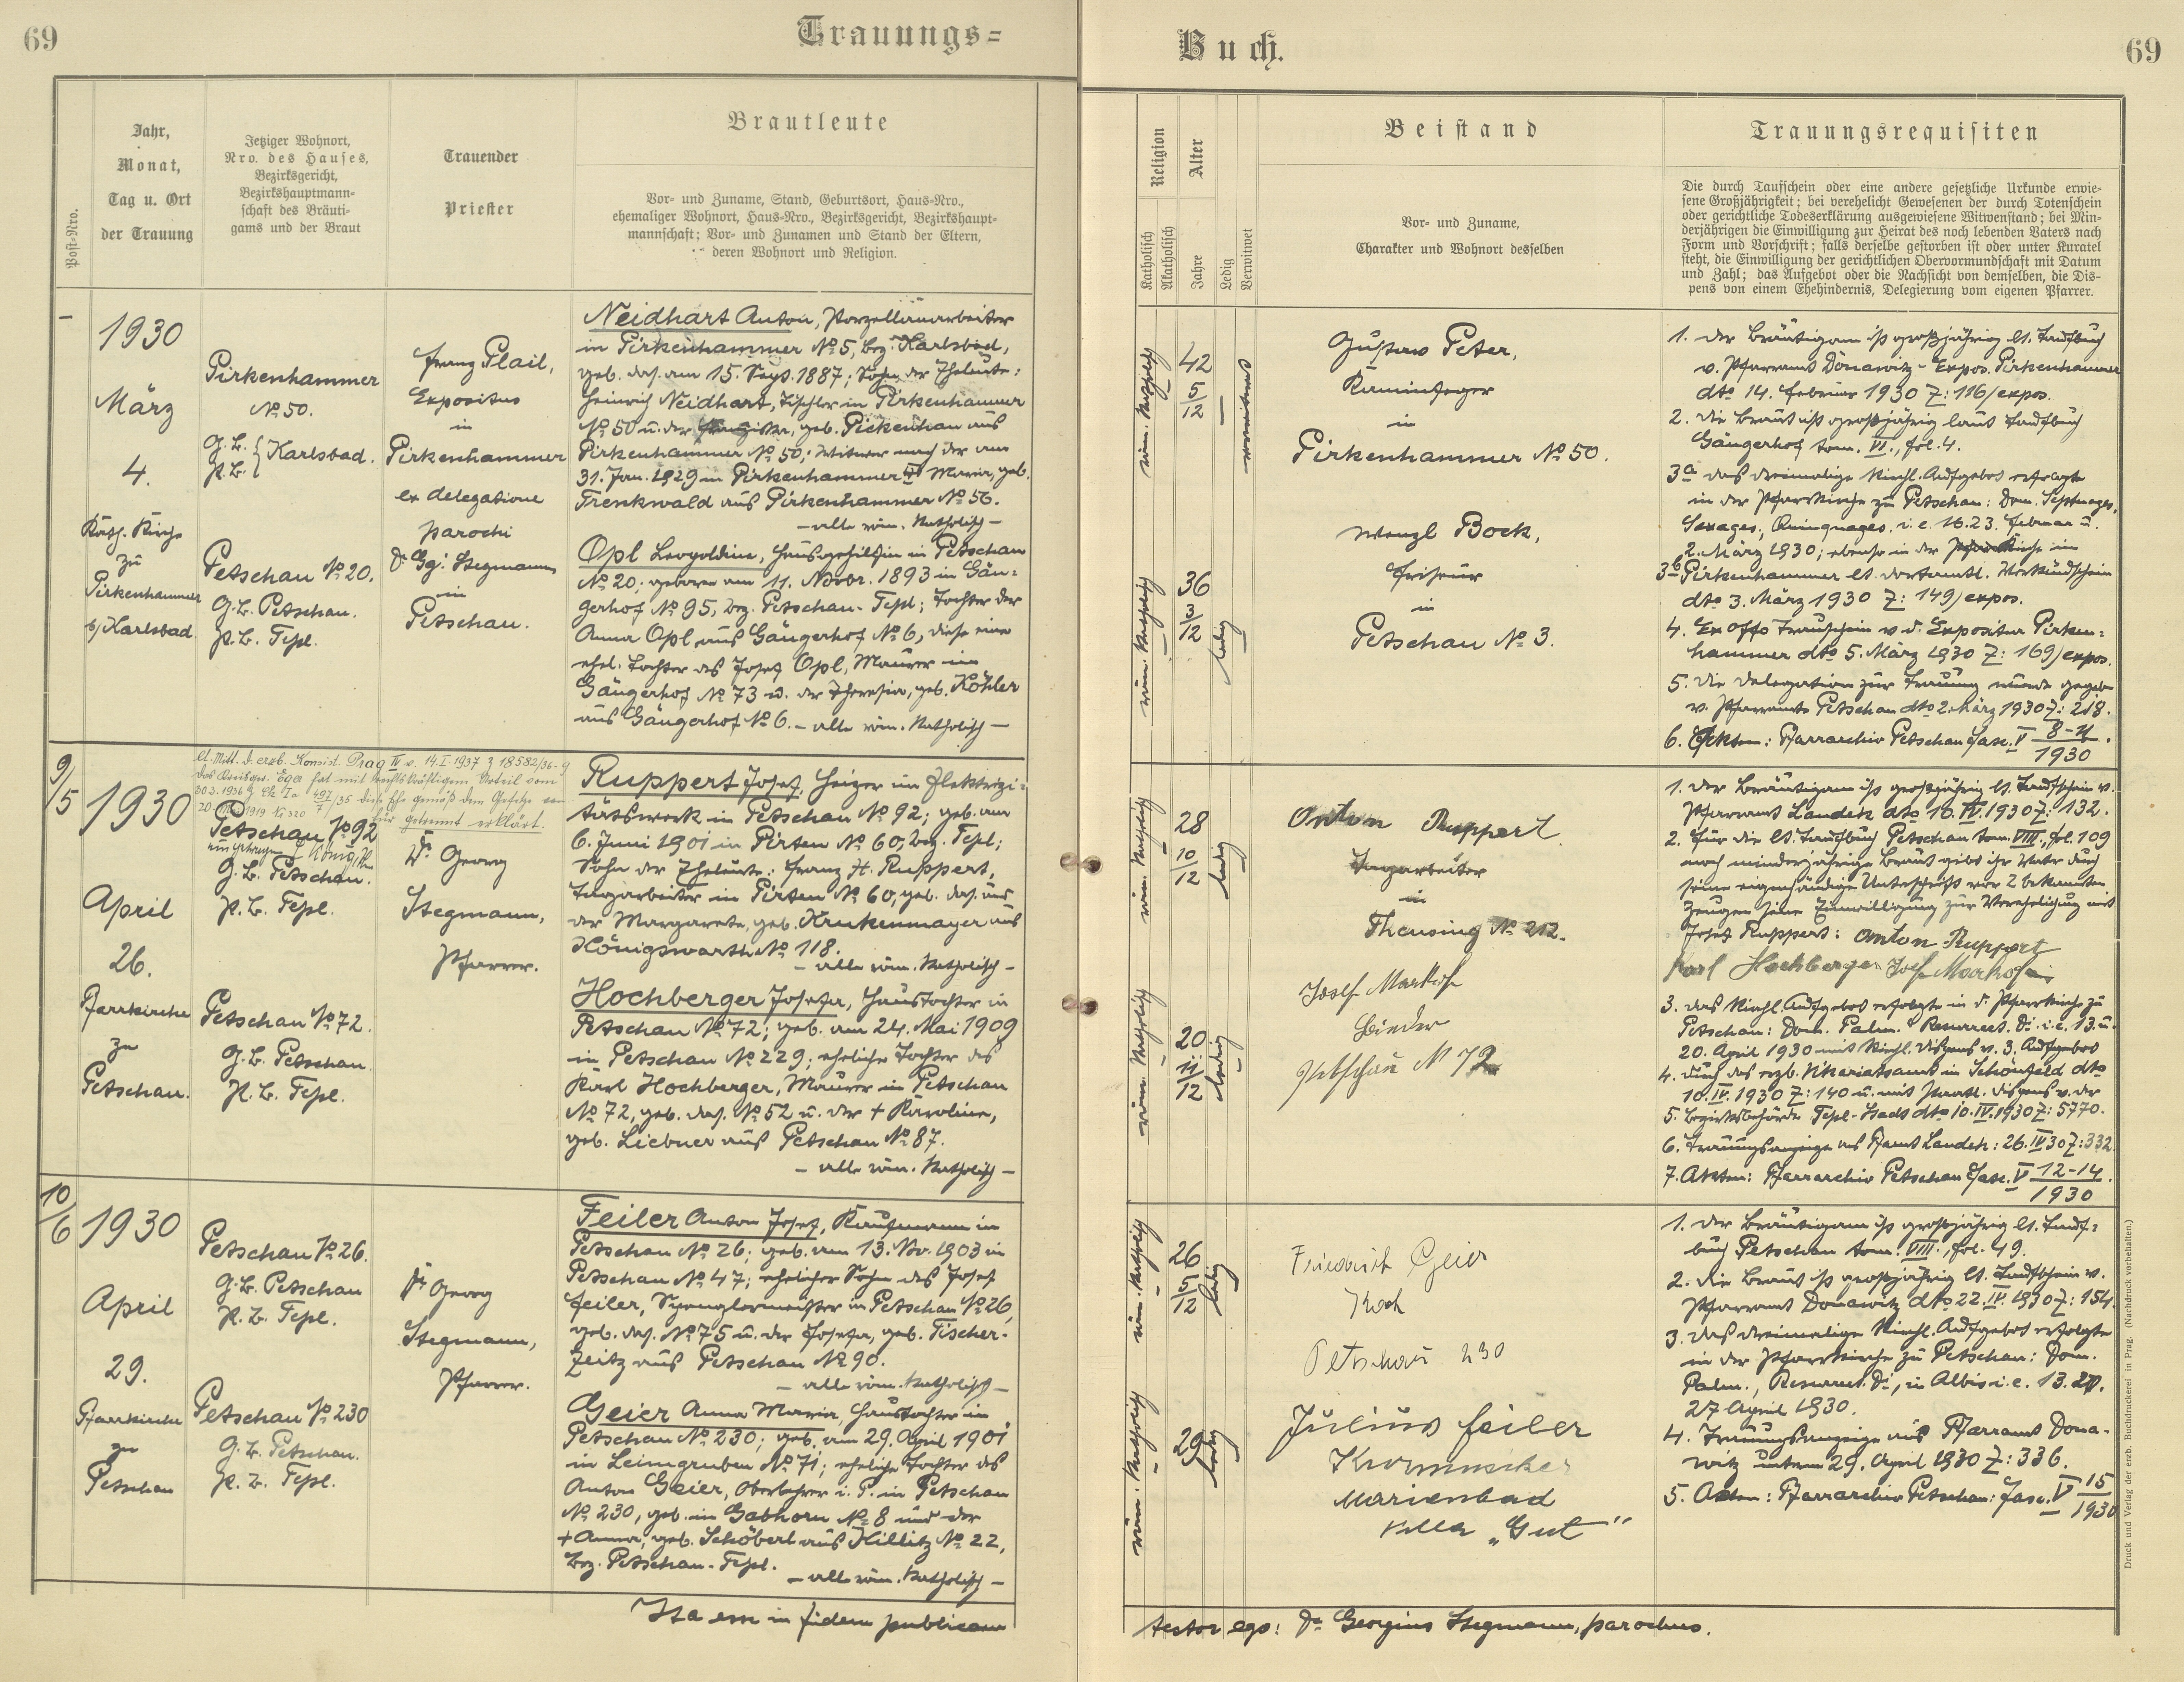 69
Trauungs=
Buch.
69
Post=Nro.
Jahr,
Monat,
Tag u. Ort
der Trauung
Jetziger Wohnort,
Nro. des Hauses,
Bezirksgericht,
Bezirkshauptmann=
schaft des Bräuti=
gams und der Braut
Trauender
Priester
Brautleute
Vor= und Zuname, Stand, Geburtsort, Haus=Nro.,
ehemaliger Wohnort, Haus=Nro., Bezirksgericht, Bezirkshaupt=
mannschaft; Vor= und Zunamen und Stand der Eltern,
deren Wohnort und Religion.
Religion
Katholisch
Akatholisch
Alter
Jahre
Ledig
Verwitwet
Beistand
Vor= und Zuname,
Charakter und Wohnort desselben
Trauungsrequisiten
Die durch Taufschein oder eine andere gesetzliche Urkunde erwie=
sene Großjährigkeit; bei verehelicht Gewesenen der durch Totenschein
oder gerichtliche Todeserklärung ausgewiesene Witwenstand; bei Min=
derjährigen die Einwilligung zur Heirat des noch lebenden Vaters nach
Form und Vorschrift; falls derselbe gestorben ist oder unter Kuratel
steht, die Einwilligung der gerichtlichen Obervormundschaft mit Datum
und Zahl; das Aufgebot oder die Nachsicht von demselben, die Dis=
pens von einem Ehehindernis, Delegierung vom eigenen Pfarrer.
–
1930
März
4.
Kath. Kirche
zu
Pirkenhammer
b/Karlsbad.
Pirkenhammer
No 50.
G.B. } Karlsbad.
P.B.
Petschau No 20.
G.B. Petschau.
P.B. Tepl.
Franz Plail,
Expositus
in
Pirkenhammer
ex delegatione
parochi
Dr Gg. Stegmann
in
Petschau.
Neidhart Anton, Porzellanarbeiter
in Pirkenhammer No 5, bez. Karlsbad,
geb. das. am 15. Sept. 1887; Sohn der Eheleute:
Heinrich Neidhart, Tischler in Pirkenhammer
No 50 u. der Franziska, geb. Pickenhan aus
Pirkenhammer No 50; Witwer nach der am
31. Jan. 1929 in Pirkenhammer † Maria, geb.
Trenkwald aus Pirkenhammer No 56.
– alle röm. Katholisch –
Opl Leopoldine, Hausgehilfin in Petschau
No 20; geboren am 11. Novbr. 1893 in Gän=
gerhof No 95, bez. Petschau-Tepl; Tochter der
Anna Opl aus Gängerhof No 6, diese eine
ehel. Tochter des Josef Opl, Maurer in
Gängerhof No 73 u. der Theresia, geb. Köhler
aus Gängerhof No 6. – alle röm. Katholisch –
röm. Katholisch
42
5/12
–
verwitwet
röm. Katholisch
36
3/12
ledig
–
Gustav Peter,
Kaminfeger
in
Pirkenhammer No 50.
Wenzl Bock,
Friseur
in
Petschau No 3.
1. Der Bräutigam ist großjährig lt. Taufbuch
v. Pfarramt Donawitz - Expos. Pirkenhammer
dto 14. Februar 1930 Z: 116/expos.
2. Die Braut ist großjährig laut Taufbuch
Gängerhof tom. VI., fol. 4.
3a das dreimalige kirchl. Aufgebot erfolgte
in der Pfarrkirche zu Petschau: Dom. Septuages,
Sexages, Quinquages. i.e. 16. 23. Februar u.
2. März 1930; ebenso in der Kirche in
3b Pirkenhammer lt. dortamtl. Verkündschein
dto 3. März 1930 Z: 149/expos.
4. Ex offo Trauschein v. d. Expositur Pirken=
hammer dto 5. März 1930 Z: 169/expos.
5. Die Delegation zur Trauung wurde gegeb.
v. Pfarramte Petschau dto 2. März 1930 Z: 218.
6. Akten: Pfarrarchiv Petschau fasc. V 8-11/1930.
9/5
1930
April
26.
Pfarrkirche
zu
Petschau.
lt. Mitt. d. erzb. Konsist. Prag IV v. 14.I.1937 Z 18582/36-9
das Kreisger. Eger hat mit rechtskräftigem Urteil vom
30.3.1936 Z Ck Ia 497/35 diese Ehe gemäß dem Gesetze vom
20. 1919 No 320 für getrennt erklärt.
Petschau No 92
G.B. Petschau.
P.B. Tepl.
Petschau No 72.
G.B. Petschau.
P.B. Tepl.
Dr. Georg
Stegmann,
Pfarrer.
Ruppert Josef, Heizer im Elektrizi=
tätswerk in Petschau No 92; geb. am
6. Juni 1901 in Pirten No 60, bez. Tepl;
Sohn der Eheleute: Franz H. Ruppert,
Tagarbeiter in Pirten No 60, geb. das. und
der Margarete, geb. Krukenmayer aus
Königswarth No 118.
– alle röm. Katholisch –
Hochberger Josefa, Haustochter in
Petschau No 72; geb. am 24. Mai 1909
in Petschau No 229; eheliche Tochter des
Karl Hochberger, Maurer in Petschau
No 72, geb. das. No 52 u. der + Karoline,
geb. Liebner aus Petschau No 87.
– alle röm. Katholisch –
röm. Katholisch
28
10/12
ledig
röm. Katholisch
20
11/12
ledig
Anton Ruppert
Tagarbeiter
in
Theusing No 212.
Josef Markof
Binder
Petschau N 72
1. Der Bräutigam ist großjährig lt. Taufschein v.
Pfarramt Landek dto 10.IV.1930 Z: 132.
2. Für die lt. Taufbuch Petschau tom. VIII., fol. 109
noch minderjährige Braut gibt ihr Vater durch
seine eigenhändige Unterschrift vor 2 bekannten
Zeugen seine Einwilligung zur Verehelichung mit
Josef Ruppert: Anton Ruppert
Karl Hochberger
3. das kirchl. Aufgebot erfolgte in d. Pfarrkirche zu
Petschau: Dom. Palm. Resurrect. Di. i.e. 13. u.
20. April 1930 mit kirchl. Dispens v. 3. Aufgebot
4. durch das erzb. Vikariatsamt in Schönfeld dto
10.IV.1930 Z: 140 u. mit staatl. Dispens v. der
5. Bezirksbehörde Tepl-Stadt dto 10.IV.1930 Z: 5770.
6. Trauungsanzeige ans Pfamt Landek: 26.IV.30 Z: 332.
7. Akten: Pfarrarchiv Petschau fasc. V 12-14/1930
10/6
1930
April
29.
Pfarrkirche
zu
Petschau
Petschau No 26.
G.B. Petschau
P.B. Tepl.
Petschau No 230
G.B. Petschau.
P.B. Tepl.
Dr Georg
Stegmann,
Pfarrer.
Feiler Anton Josef, Kaufmann in
Petschau No 26; geb. am 13. No. 1903 in
Petschau No 47; ehelicher Sohn des Josef
Feiler, Spenglermeister in Petschau No 26,
geb. das. No 75 u. der Josefa, geb. Fischer-
Zeitz aus Petschau No 90.
– alle röm. Katholisch –
Geier Anna Maria, Haustochter in
Petschau No 230; geb. am 29. April 1901
in Leimgruben No 71; eheliche Tochter des
Anton Geier, Oberlehrer i. P. in Petschau
No 230, geb. in Gabhorn No 8 und der
+ Anna, geb. Schöberl aus Hillitz No 22,
bez. Petschau-Tepl.
– alle röm. Katholisch –
röm. Katholisch
26
5/12
ledig
röm. Katholisch
29
ledig
Friedrich Geier
Koch
Petschau 230
Julius Feiler
Marienbad
Villa „Gut“
1. Der Bräutigam ist großjährig lt. Tauf=
buch Petschau tom. VIII., fol. 49.
2. Die Braut ist großjährig lt. Taufschein v.
Pfarramt Donawitz dto 22.IV.1930 Z: 154.
3. das dreimalige kirchl. Aufgebot erfolgte
in der Pfarrkirche zu Petschau: Dom.
Palm., Resurrect. Di., in Albis i.e. 13. 20.
27 April 1930.
4. Trauungsanzeige ans Pfarramt Dona-
witz unterm 29. April 1930 Z: 336.
5. Akten: Pfarrarchiv Petschau: fasc. V 15/1930
Ita esse in fidem publicam
testor ego: Dr Georgius Stegmann, parochus.
Druck und Verlag der erzb. Buchdruckerei in Prag. (Nachdruck vorbehalten.)